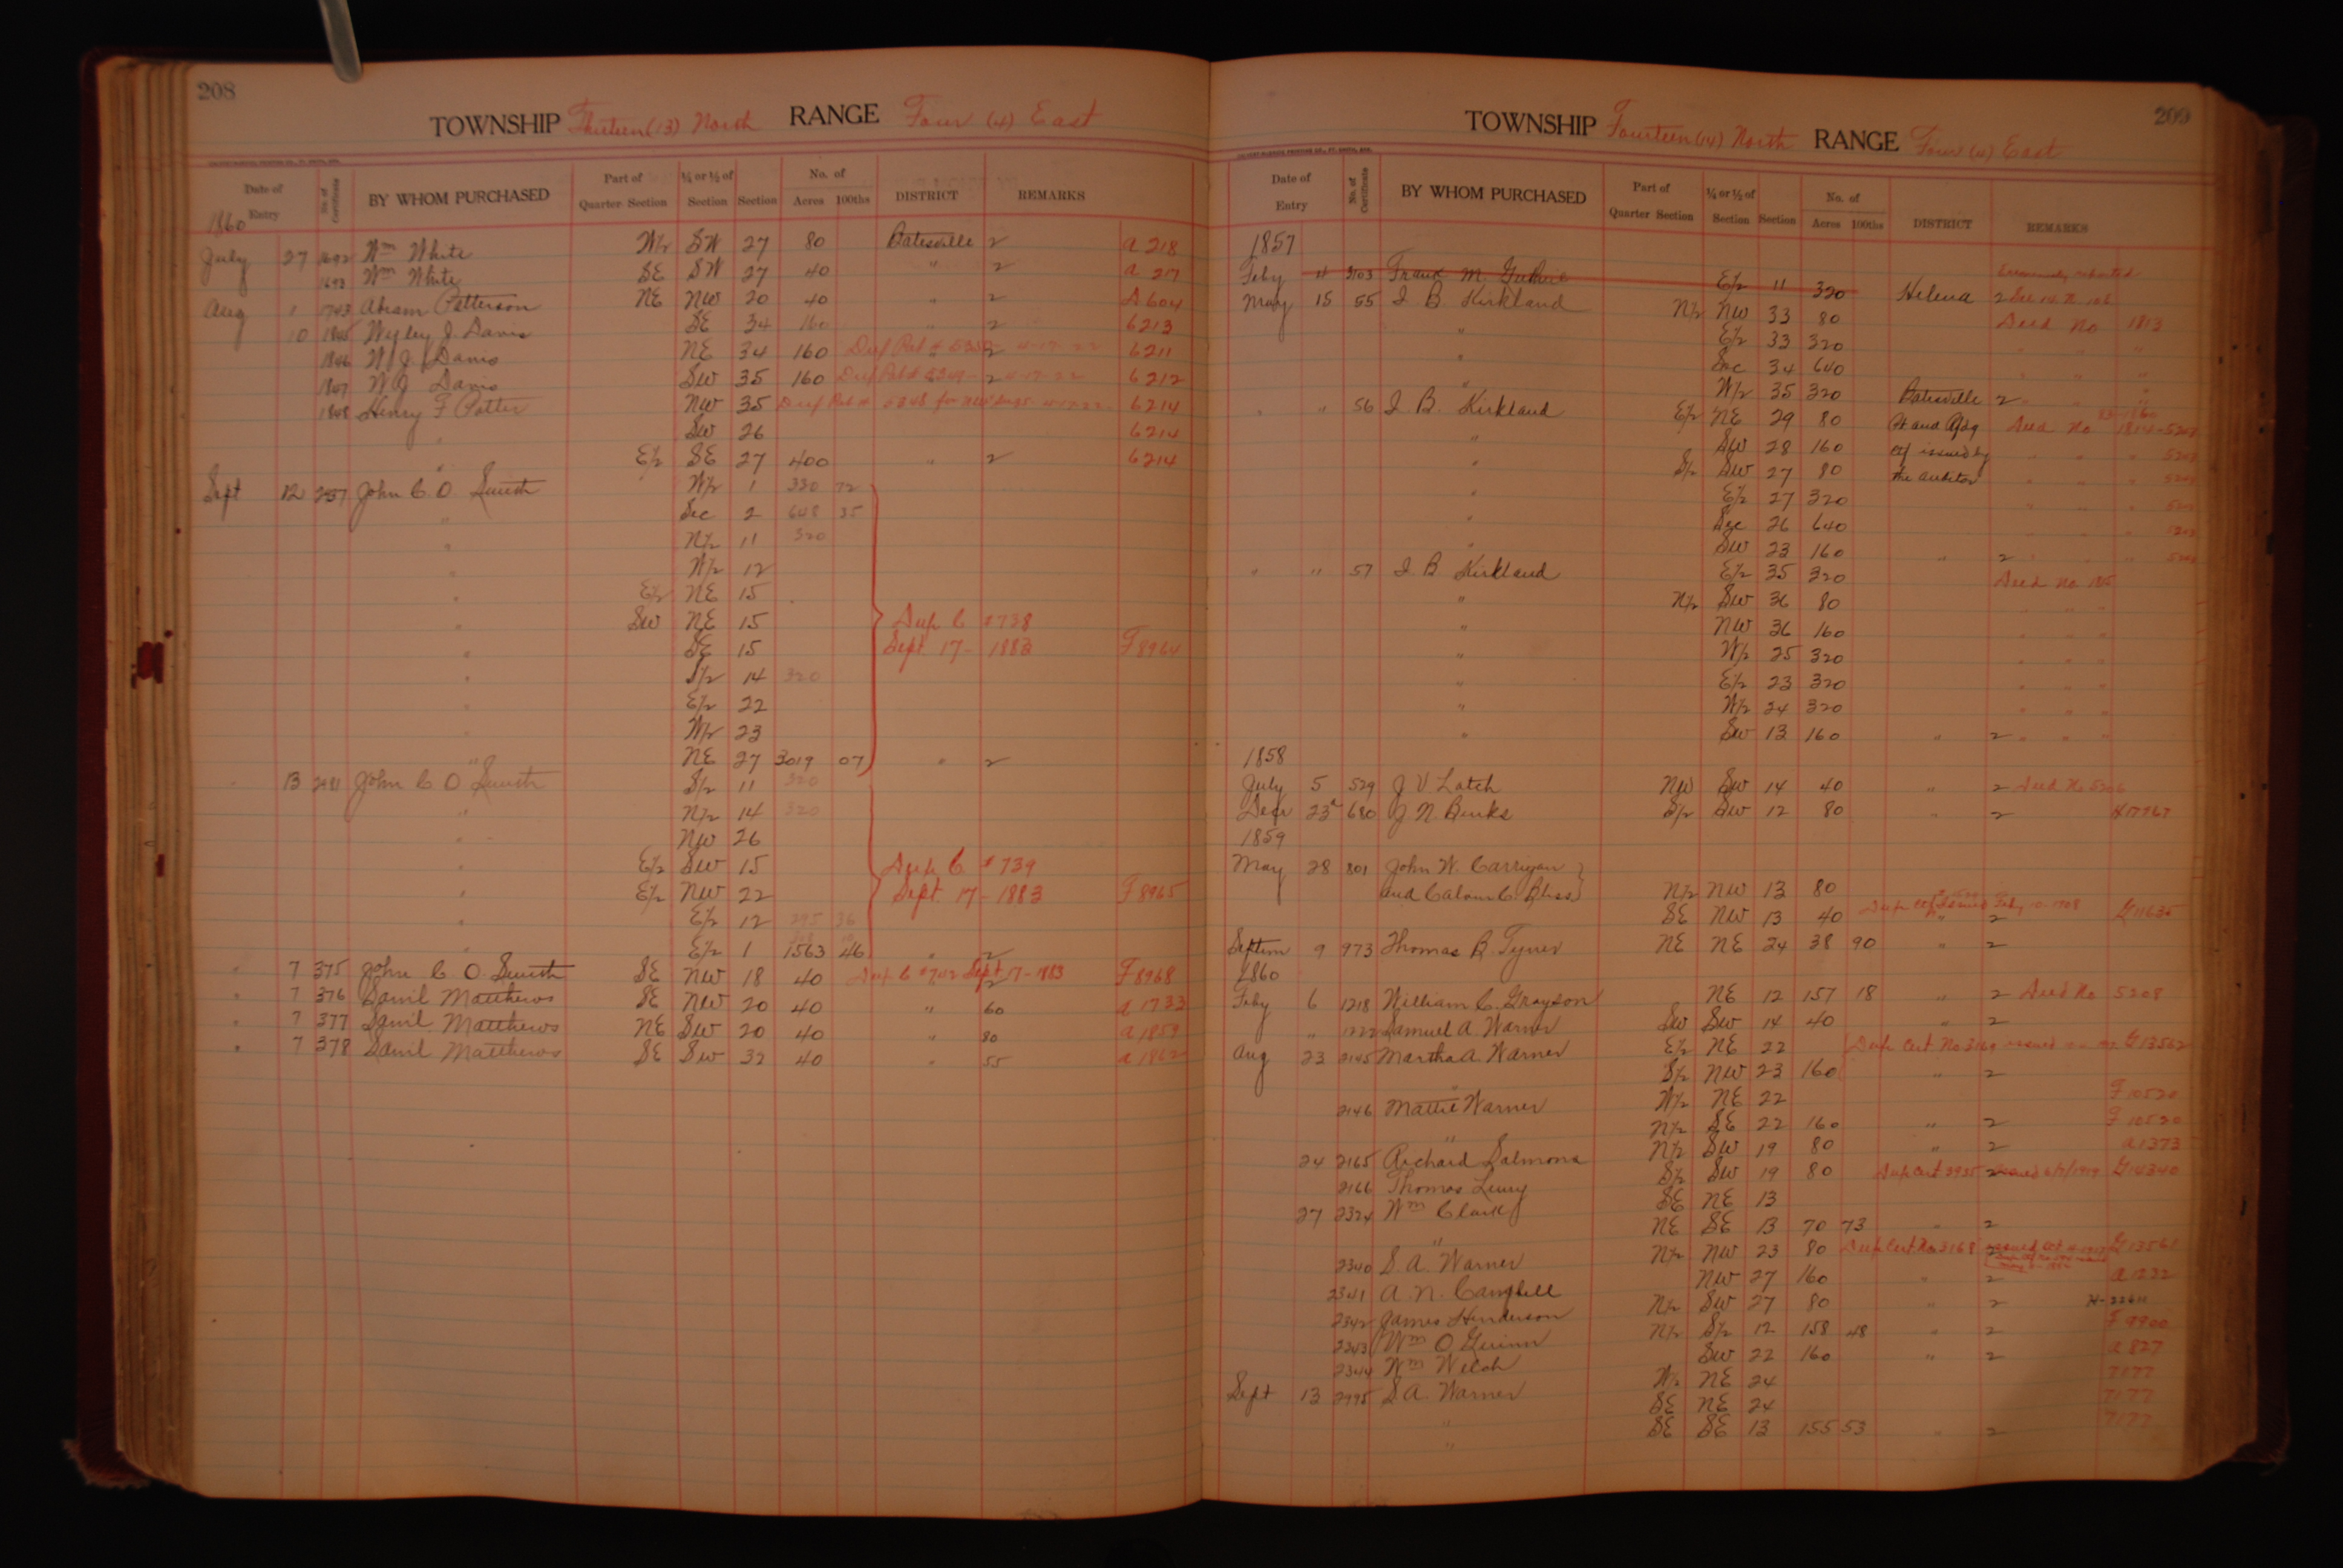 208
TOWNSHIP Thirteen (13) North RANGE Four (4) East
Date of Entry No. of Certificate BY WHOM PURCHASED Part of Quarter Section ¼ or ½ of Section Section No. of Acres 100ths DISTRICT REMARKS
1860
July 27 1692 Wm White W/2 SW 27 80 Batesville 2 A 218
1693 Wm White SE SW 27 40 " 2 A 217
Aug 1 1743 Abram Patterson NE NW 20 40 " 2 A 604
10 1845 Wyley J. Davis SE 34 160 " 2 6213
1846 W. J. Davis NE 34 160 2 6211
1847 W J Davis SW 35 160 2 6212
1848 Henry F Potter NW 35 6214
" SW 26 6214
" E/2 SE 27 400 " 2 6214
Sept 12 John C O. Smith W/2 1 330 72
" Sec 2 648 35
" N/2 11 320
" W/2 12
" E/2 NE 15
" SW NE 15 Dup C #738
" SE 15 Sept. 17 - 1883 F8964
" S/2 14 320
" E/2 22
" W/2 23
" NE 27 3019 07 " 2
" 13 John C O Smith S/2 11 320
" N/2 14 320
" NW 26
" E/2 SW 15 Dup C #739
" E/2 NW 22 Sept. 17 - 1883 F8965
" E/2 12 295 36
" E/2 1 1563 46 " 2
" 7 375 John C O. Smith SE NW 18 40 Sept 17 - 1883 F8968
" 7 376 Danil Matthews SE NW 20 40 " 60 A 1733
" 7 377 Danil Matthews NE SW 20 40 " 80 A 1859
" 7 378 Danil Matthews SE SW 32 40 " 55 A 1862
209
TOWNSHIP Fourteen (14) North RANGE Four (4) East
Date of Entry No. of Certificate BY WHOM PURCHASED Part of Quarter Section ¼ or ½ of Section Section No. of Acres 100ths DISTRICT REMARKS
1857
Feby 11 3103 Frank M. Guthrie E/2 11 320 Helena 2 Erroneously reported
May 15 55 J. B. Kirkland N/2 NW 33 80 Deed No 1813
" E/2 33 320 " " "
" Sec 34 640 " " "
" W/2 35 320 Batesville 2 " "
" " 56 J. B. Kirkland E/2 NE 29 80 Deed No 1814 - 5203
" SW 28 160 ctf issued by " " " 5203
" S/2 SW 27 80 the auditor " " " 5203
" E/2 27 320 " " " 5203
" Sec 26 640 " " " 5203
" SW 23 160 " 2 " " 5203
" " 57 J. B Kirkland E/2 35 320 Deed No
" N/2 SW 36 80 " " "
" NW 36 160 " " "
" W/2 25 320 " " "
" E/2 23 320 " " "
" W/2 24 320 " " "
" SW 13 160 " 2 " " "
1858
July 5 529 J. V. Latch NW SW 14 40 " 2 Deed No 5206
Decr 23d 680 J. N. Burks S/2 SW 12 80 " 2 H 17767
1859
May 28 801 John W. Carrigan
and Calvin C. Bliss N/2 NW 13 80
SE NW 13 40 " 2 G 11635
Septem 9 973 Thomas B. Tyner NE NE 24 38 90 " 2
1860
Feby 6 1218 William C. Grayson NE 12 157 18 " 2 Deed No 5208
" 1222 Samuel A. Warner SW SW 14 40 " 2
Aug 23 2145 Martha A. Warner E/2 NE 22 Dup Cert No 3169 issued G 13562
" S/2 NW 23 160 " 2
2146 Mattie Warner W/2 NE 22 F 10520
" N/2 SE 22 160 " 2 F 10520
24 2165 Richard Salmons N/2 SW 19 80 " 2 A 1373
2166 Thomas Leury S/2 SW 19 80 Dup Cert 3935 2 G 14340
27 2324 Wm Clark SE NE 13
" NE SE 13 70 73 " 2
2340 S. A. Warner N/2 NW 23 80 Dup Cert No 3168 issued G 13561
2341 A. N. Campbell NW 27 160 " 2 A 1232
2342 James Henderson N/2 SW 27 80 " 2 H-22611
2343 Wm O Guinn N/2 S/2 12 158 48 " 2 F 9900
2344 Wm Welch SW 22 160 " 2 A 827
Sept 13 2995 S A. Warner W/2 NE 24 7177
" SE NE 24 7177
" SE SE 13 155 53 " 2 7177